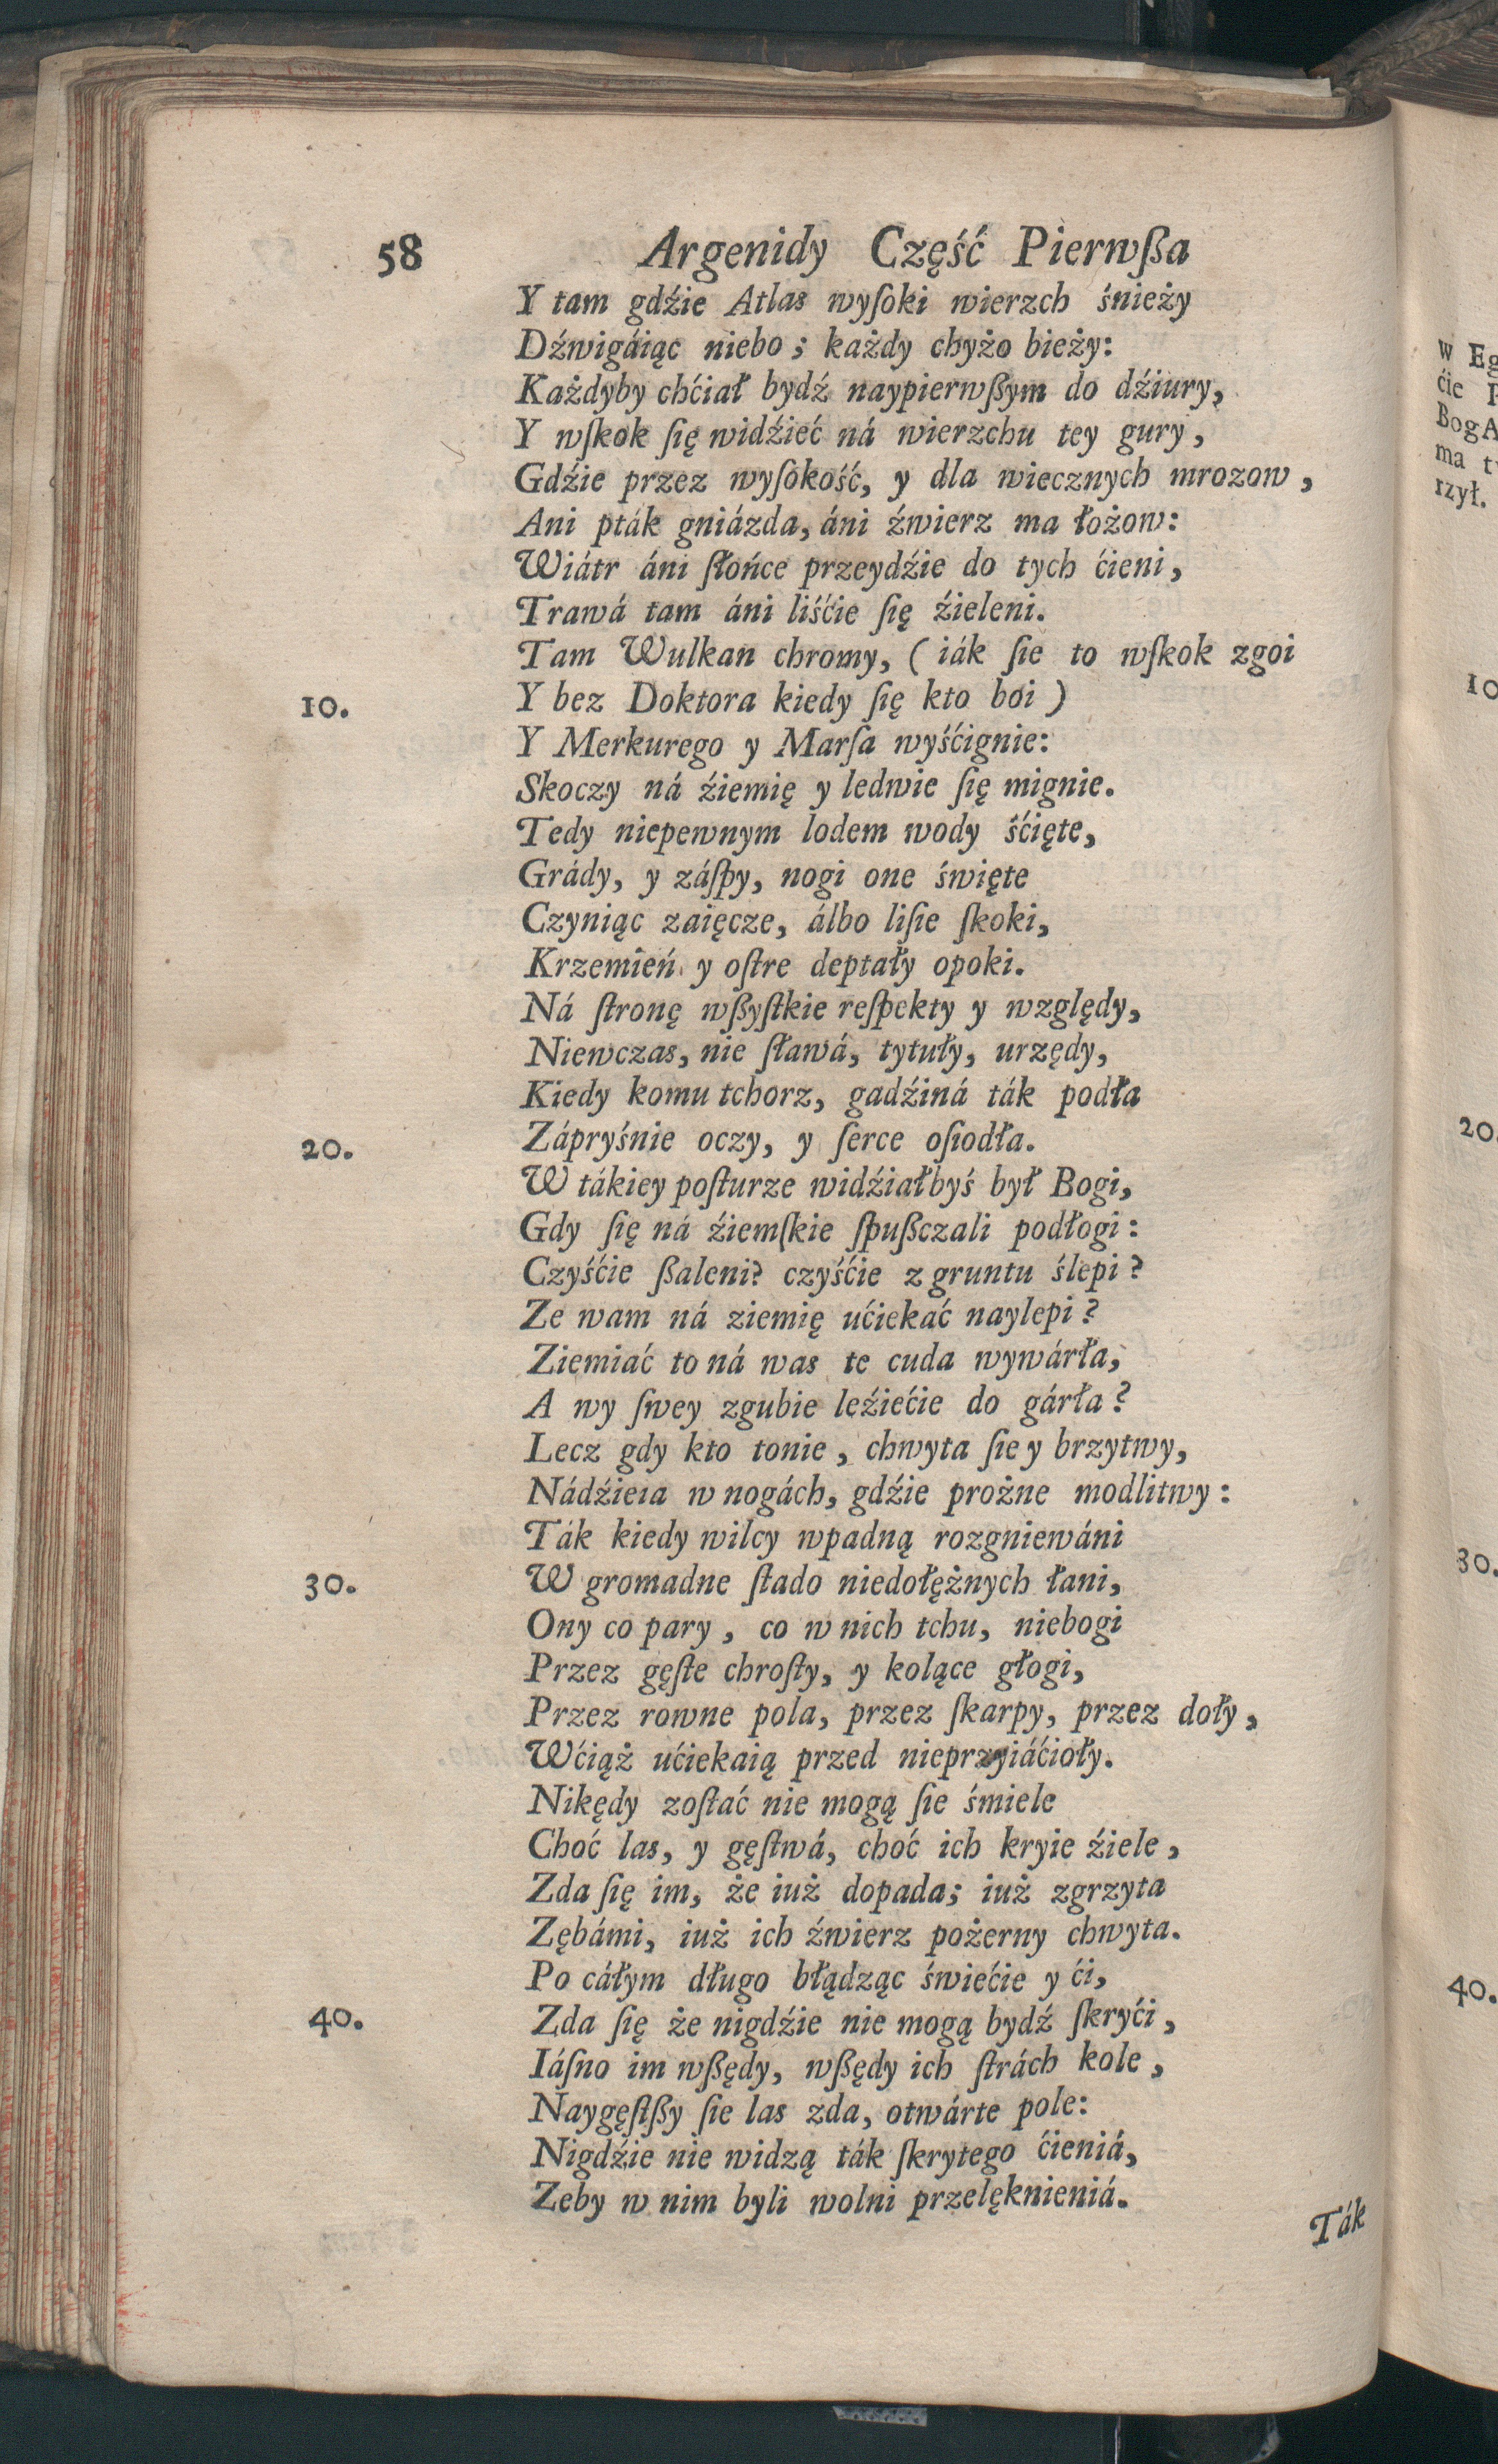 58 Argenidy Część Pierwßa
Y tam gdźie Atlas wyſoki wierzch śnieży
Dźwigáiąc niebo; każdy chyżo bieży:
Każdyby chćiał bydź naypierwßym do dźiury,
Y wſkok ſię widźieć ná wierzchu tey gury,
Gdźie przez wyſokość, y dla wiecznych mrozow,
Ani pták gniázda, áni źwierz ma łożow:
Wiátr áni ſłońce przeydźie do tych ćieni,
Trawá tam áni liśćie ſię źieleni.
Tam Wulkan chromy, (iák ſie to wſkok zgoi
10. Y bez Doktora kiedy ſię kto boi)
Y Merkurego y Marſa wyśćignie:
Skoczy ná źiemię y ledwie ſię mignie.
Tedy niepewnym lodem wody śćięte,
Grády, y záſpy, nogi one święte
Czyniąc zaięcze, álbo liſie ſkoki,
Krzemień y oſtre deptały opoki.
Ná ſtronę wßyſtkie reſpekty y względy,
Niewczas, nie ſławá, tytuły, urzędy,
Kiedy komu tchorz, gadźiná ták podła
20. Zápryśnie oczy, y ſerce oſiodła.
W tákiey poſturze widźiałbyś był Bogi,
Gdy ſię ná źiemſkie ſpußczali podłogi:
Czyśćie ßaleni? czyśćie z gruntu ślepi?
Ze wam ná ziemię ućiekać naylepi?
Ziemiać to ná was te cuda wywárła,
A wy ſwey zgubie leźiećie do gárła?
Lecz gdy kto tonie, chwyta ſie y brzytwy,
Nádźieia w nogách, gdźie prożne modlitwy:
Ták kiedy wilcy wpadną rozgniewáni
30. W gromadne ſtado niedołężnych łani,
Ony co pary, co w nich tchu, niebogi
Przez gęſte chroſty, y kolące głogi,
Przez rowne pola, przez ſkarpy, przez doły,
Wćiąż ućiekaią przed nieprzyiáćioły.
Nikędy zoſtać nie mogą ſie śmiele
Choć las, y gęſtwá, choć ich kryie źiele,
Zda ſię im, że iuż dopada; iuż zgrzyta
Zębámi, iuż ich źwierz pożerny chwyta.
Po cáłym długo błądząc świećie y ći,
40. Zda ſię że nigdźie nie mogą bydź ſkryći,
Iáſno im wßędy, wßędy ich ſtrách kole,
Naygęſtßy ſie las zda, otwárte pole:
Nigdźie nie widzą ták ſkrytego ćieniá,
Zeby w nim byli wolni przelęknieniá.
Ták
w Eg
ćie
Bog
ma
rzył.
10
20.
30.
40.